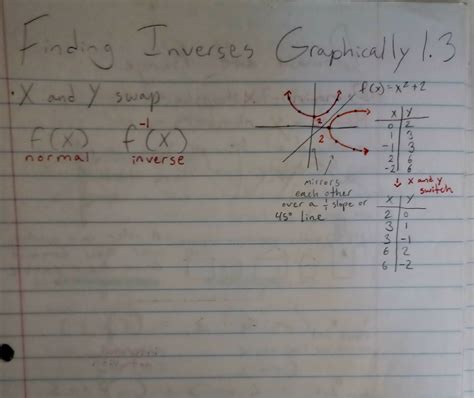 Finding Inverses Graphically 1.3
• X and Y swap
f(x) f⁻¹(x)
normal inverse
f(x)=x²+2
2
2
mirrors
each other
over a 1/1 slope or
45° line
X Y
0 2
1 3
-1 3
2 6
-2 6
↓ X and Y
switch
X Y
2 0
3 1
3 -1
6 2
6 -2